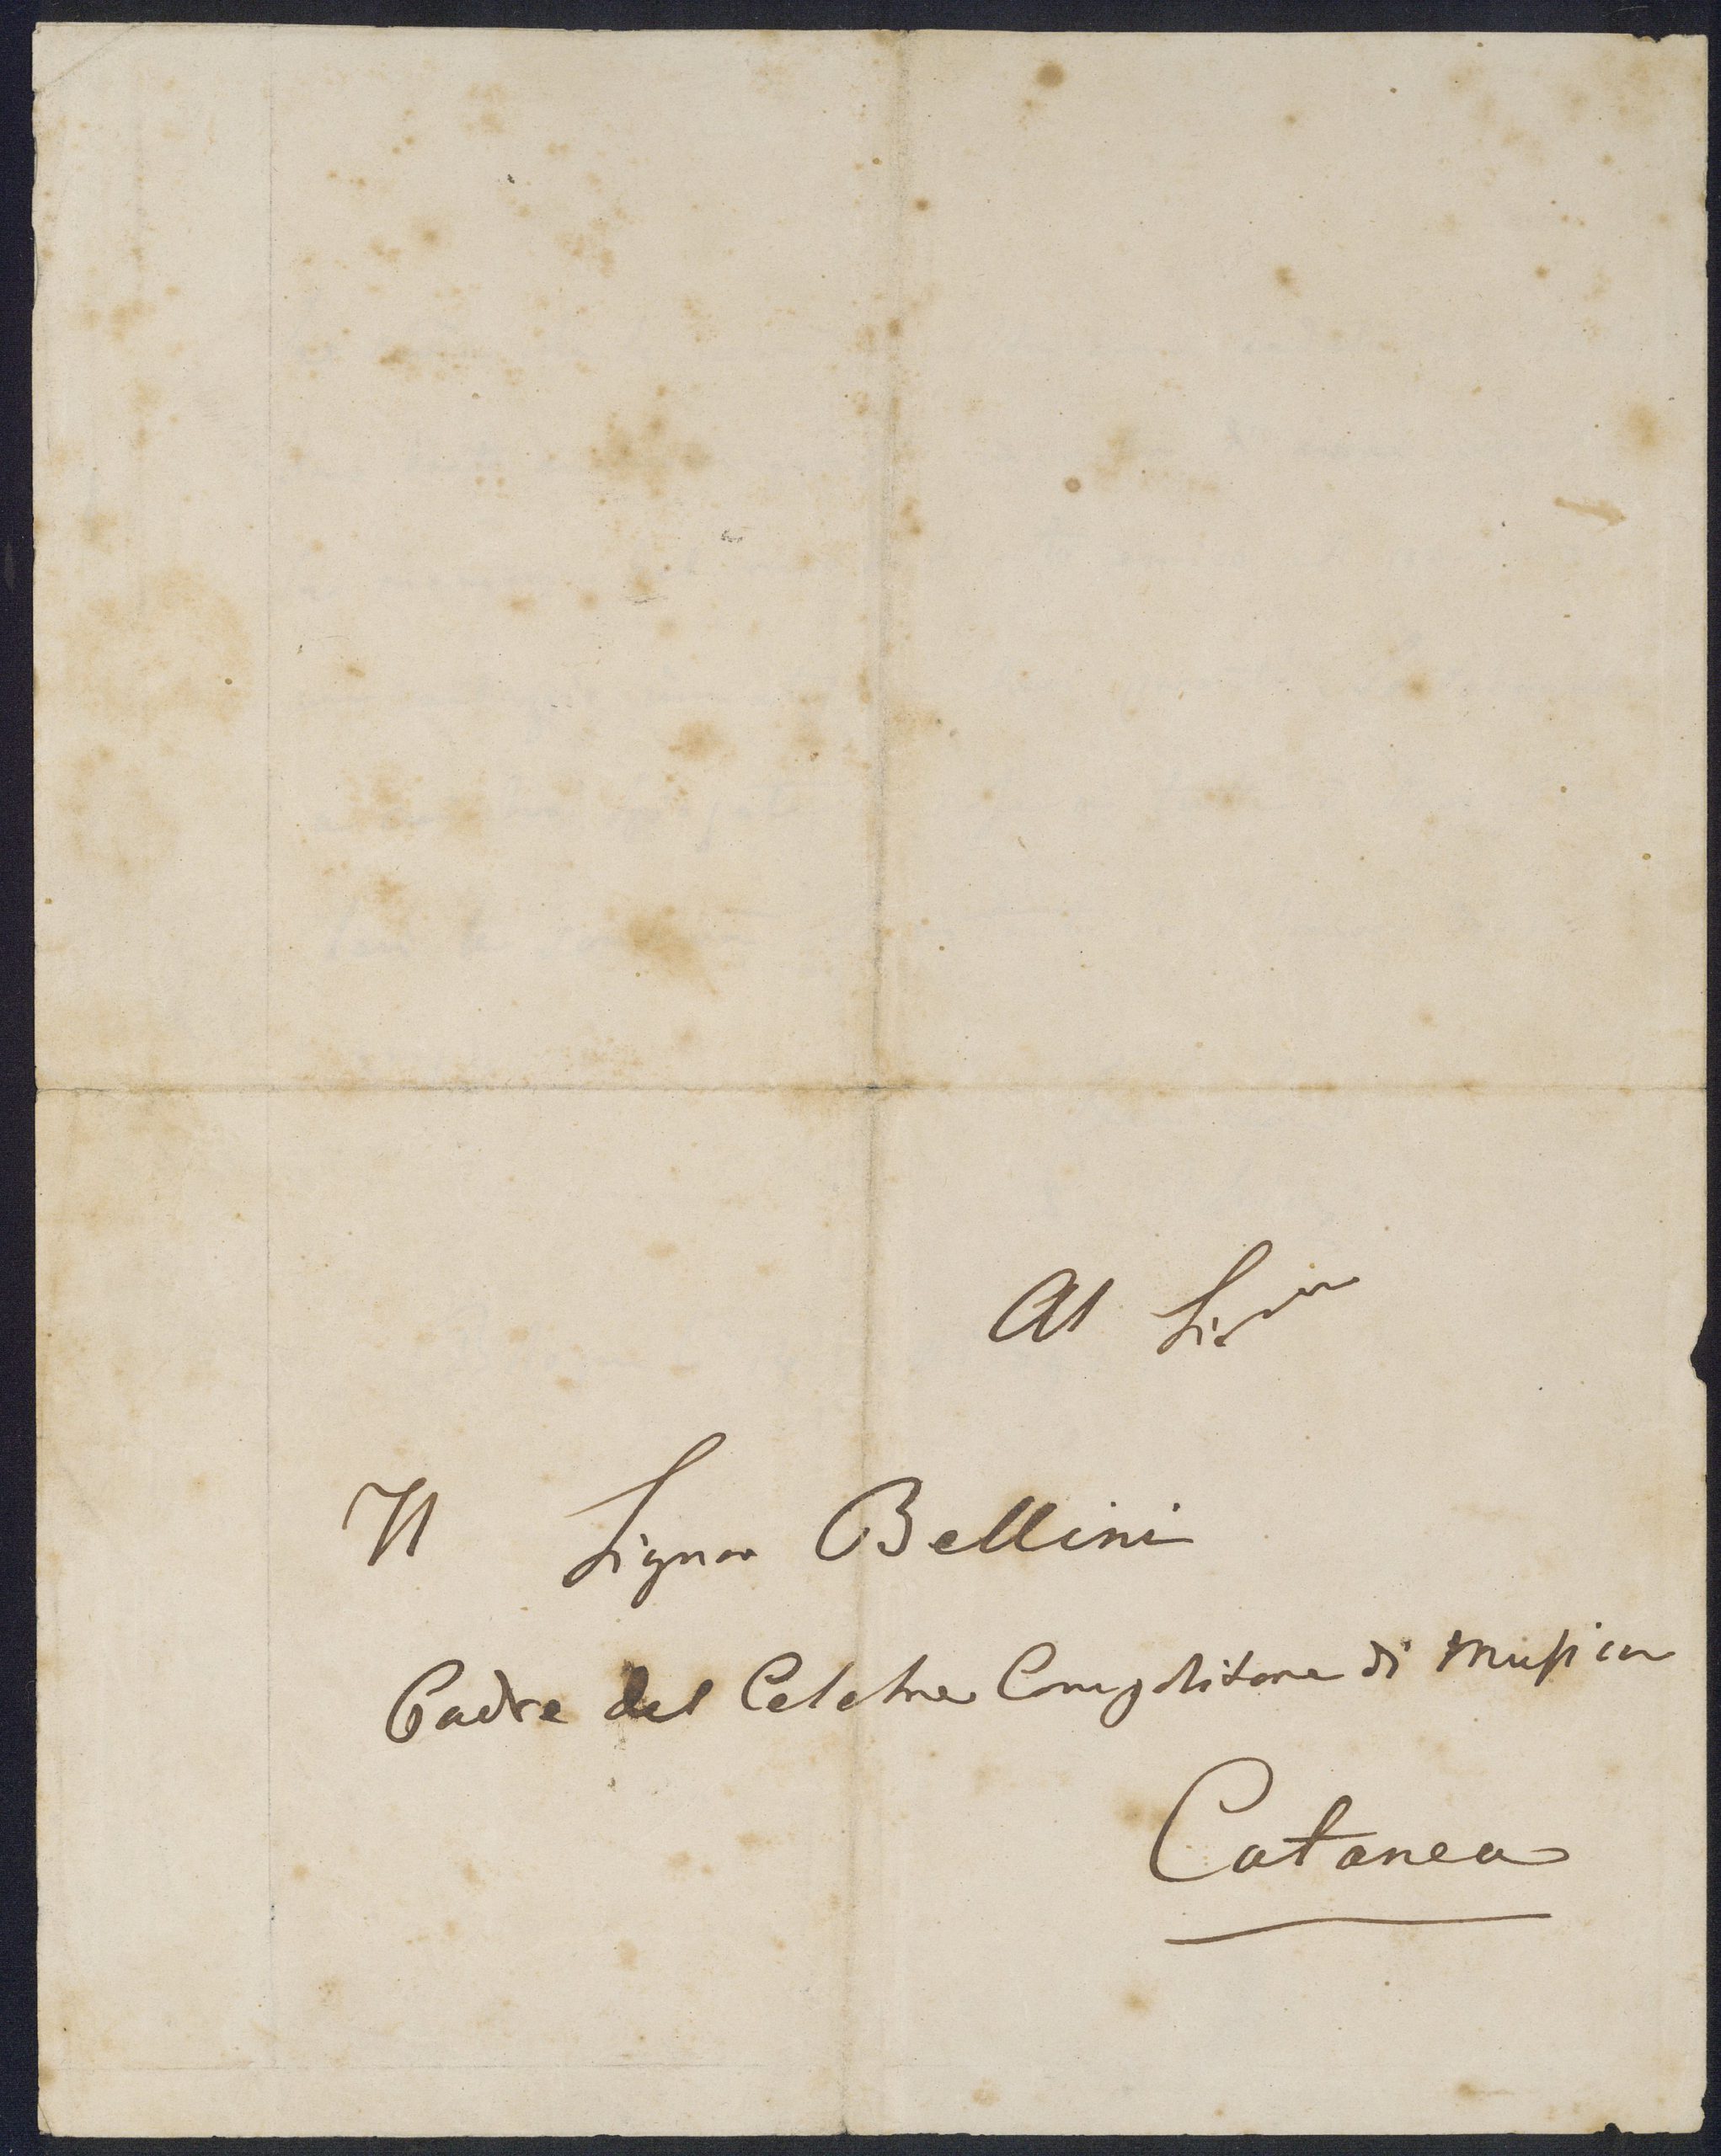 Al Sigor
Il Signor Bellini
Padre del Celebre Compositore di Musica
Catanea